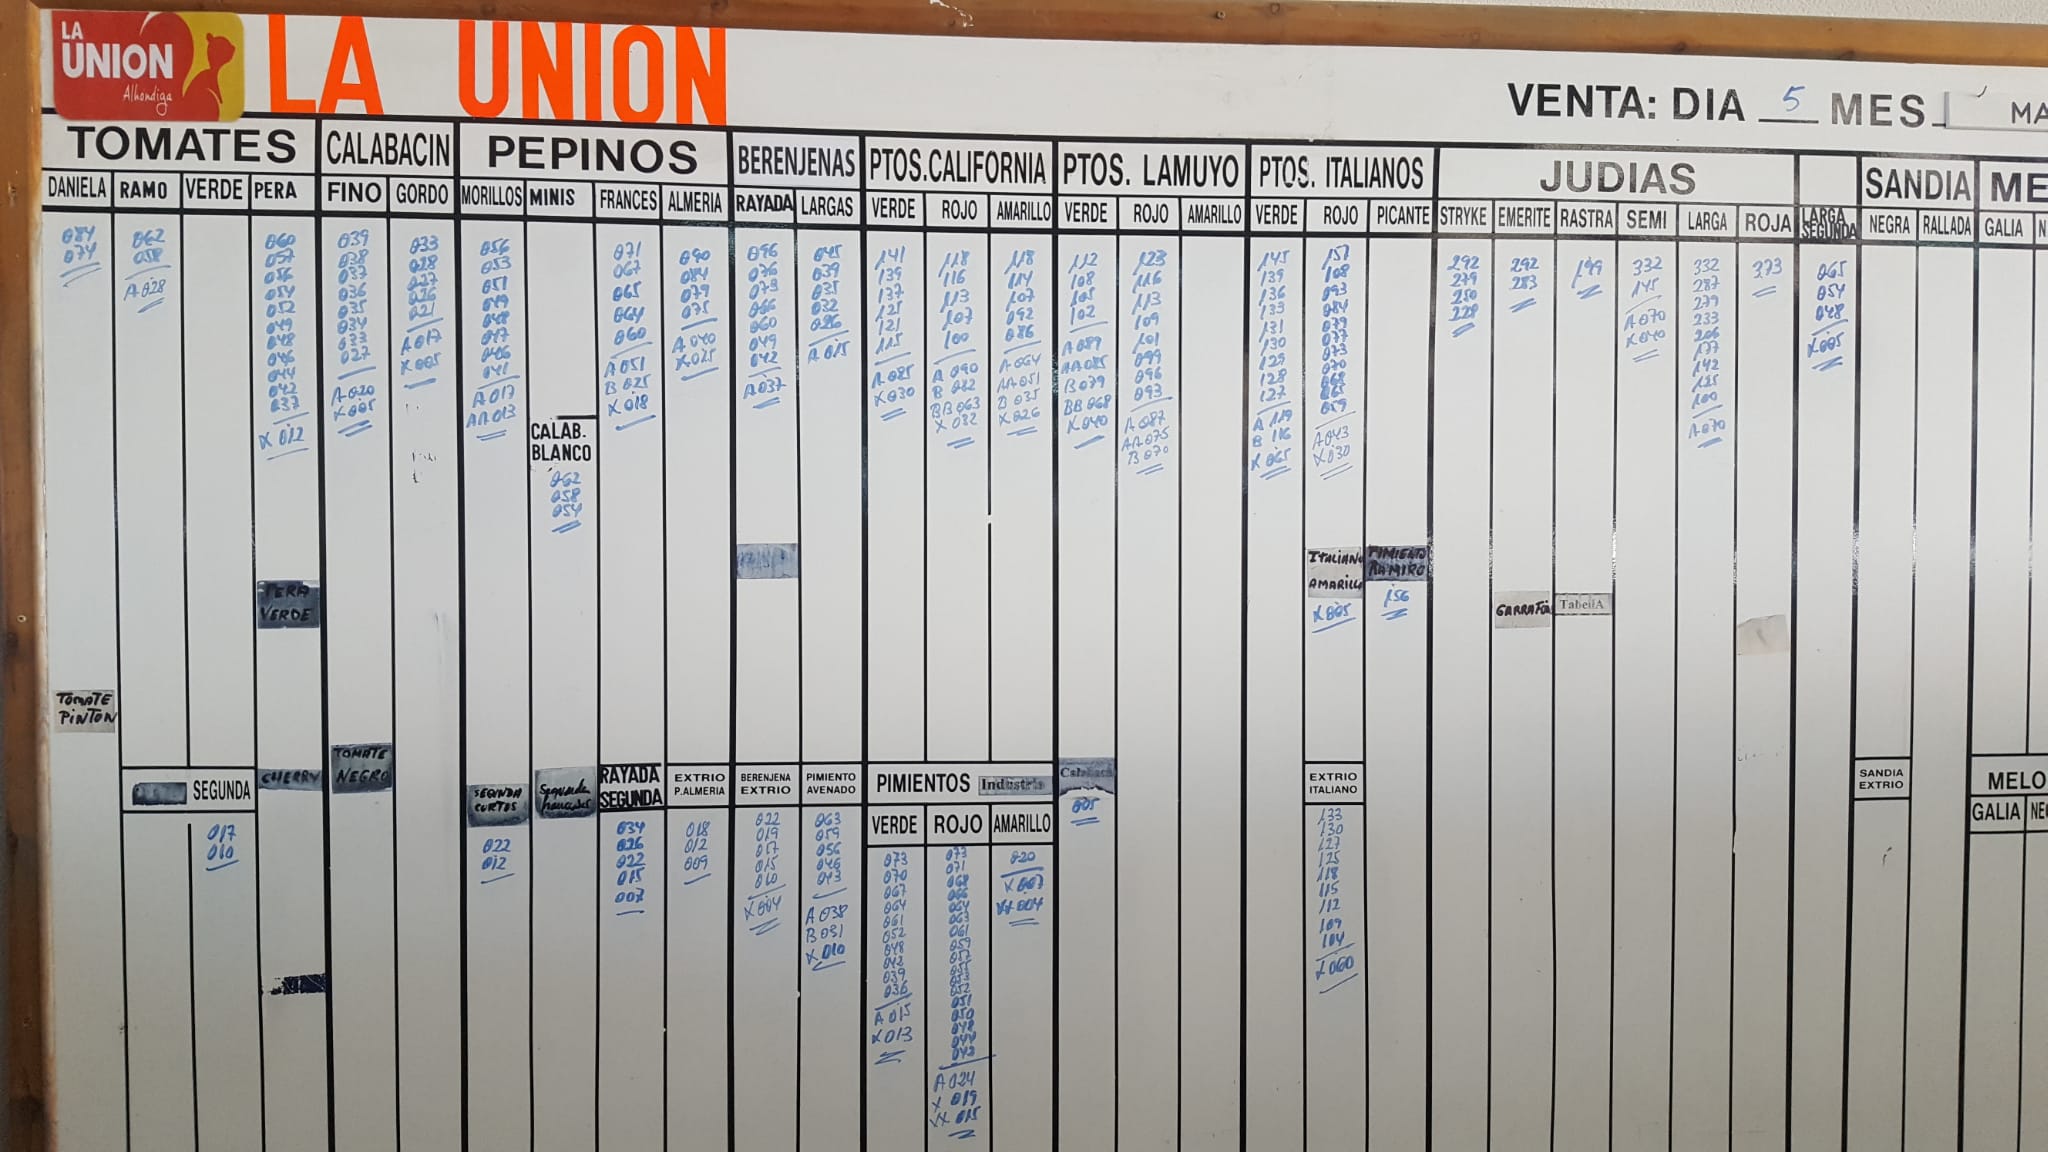 LA
UNION
Alhondiga
LA UNION
VENTA: DIA 5 MES MA
TOMATES
DANIELA
084
074
RAMO
062
058
A 028
VERDE
PERA
060
057
056
054
052
049
048
046
044
042
037
X 012
PERA
VERDE
TOMATE
PINTON
SEGUNDA
017
010
CHERRY
CALABACIN
FINO
039
038
037
036
035
034
033
027
A 020
X 005
GORDO
033
028
027
026
021
A 017
X 005
TOMATE
NEGRO
PEPINOS
MORILLOS
056
053
051
049
048
047
046
041
A 017
AA 013
MINIS
CALAB.
BLANCO
062
058
054
FRANCES
071
067
065
064
060
A 051
B 025
X 018
ALMERIA
090
084
079
075
A 040
X 025
SEGUNDA
CORTOS
022
012
Segunda
franceses
RAYADA
SEGUNDA
034
026
022
015
007
EXTRIO
P.ALMERIA
018
012
009
BERENJENAS
RAYADA
096
076
073
066
060
049
042
A 037
LARGAS
045
039
035
032
026
A 015
BERENJENA
EXTRIO
022
019
017
015
010
X 004
PIMIENTO
AVENADO
063
059
056
046
043
A 038
B 031
X 010
PTOS.CALIFORNIA
VERDE
141
139
137
125
121
115
A 085
X 030
ROJO
118
116
113
107
100
A 090
B 082
BB 063
X 032
AMARILLO
118
114
107
092
086
A 064
AA 051
B 035
X 026
PIMIENTOS Industria
VERDE
073
070
067
064
061
052
048
042
039
036
A 015
X 013
ROJO
073
071
068
066
064
063
061
059
057
055
053
052
051
050
048
044
042
A 024
X 019
XX 015
AMARILLO
020
X 007
XX 004
PTOS. LAMUYO
VERDE
112
108
105
102
A 089
AA 085
B 079
BB 068
X 040
ROJO
123
116
113
109
101
099
096
093
A 087
AA 075
B 070
AMARILLO
005
PTOS. ITALIANOS
VERDE
145
139
136
133
131
130
129
128
127
A 119
B 116
X 065
ROJO
151
108
093
084
079
077
073
070
068
065
059
A 043
X 030
PICANTE
ITALIANO
AMARILLO
X 005
PIMIENTO
RAMIRO
156
EXTRIO
ITALIANO
133
130
127
125
118
115
112
109
104
X 060
JUDIAS
STRYKE
292
279
250
228
EMERITE
292
283
RASTRA
199
SEMI
332
145
A 070
X 040
LARGA
332
287
279
233
206
177
142
125
100
A 070
ROJA
373
GARRAFON
TabellA
LARGA
SEGUNDA
065
054
048
X 005
SANDIA
NEGRA
RALLADA
SANDIA
EXTRIO
ME
GALIA
N
MELO
GALIA
NEG